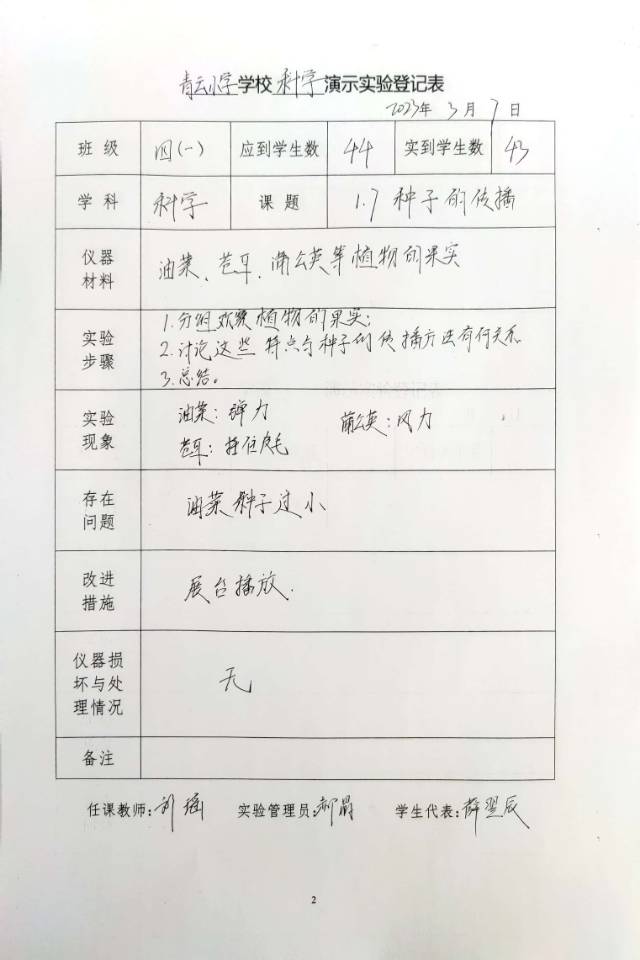 青云小学学校科学演示实验登记表
2023年3月7日
班级 四(一) 应到学生数 44 实到学生数 43
学科 科学 课题 1.7 种子的传播
仪器材料 油菜、苍耳、蒲公英等植物的果实
实验步骤 1.分组观察植物的果实;
2.讨论这些特点与种子的传播方法有何关系
3.总结。
实验现象 油菜:弹力 蒲公英:风力
苍耳:挂住皮毛
存在问题 油菜种子过小
改进措施 展台播放.
仪器损坏与处理情况 无
备注
任课教师:刘瑶 实验管理员: 学生代表:薛翌辰
2